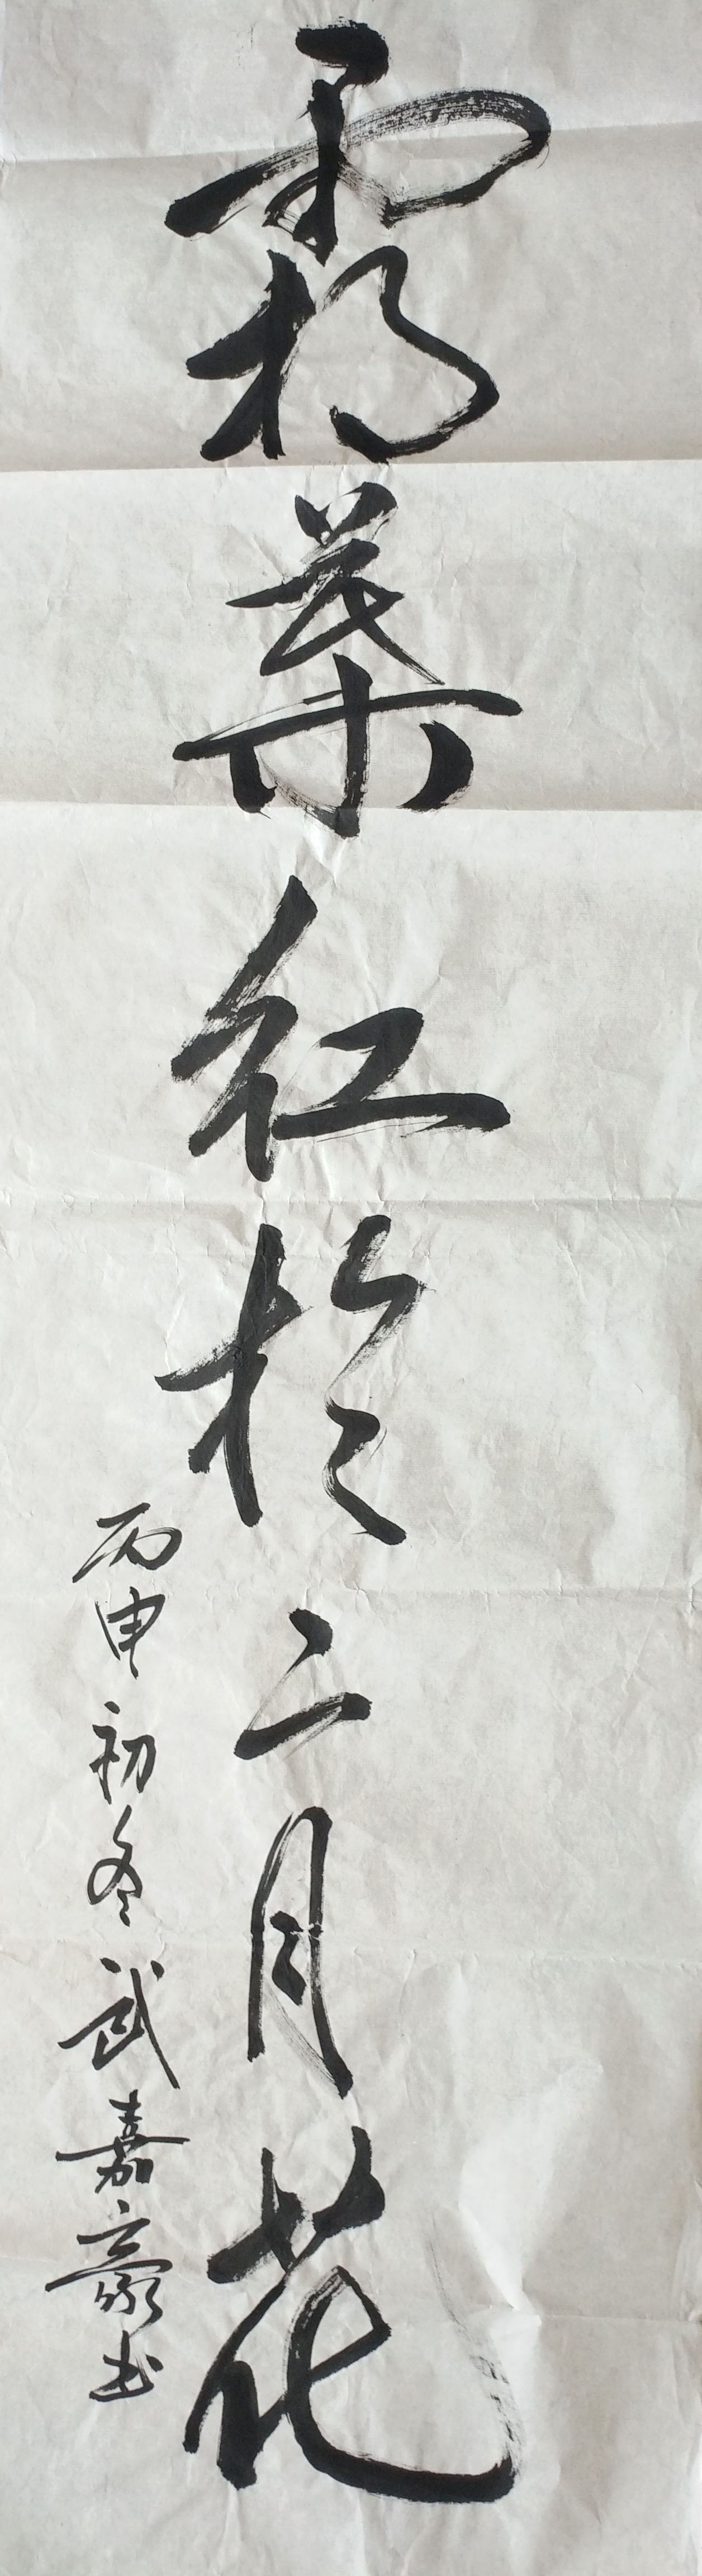 霜葉紅於二月花
丙申初冬武嘉豪书